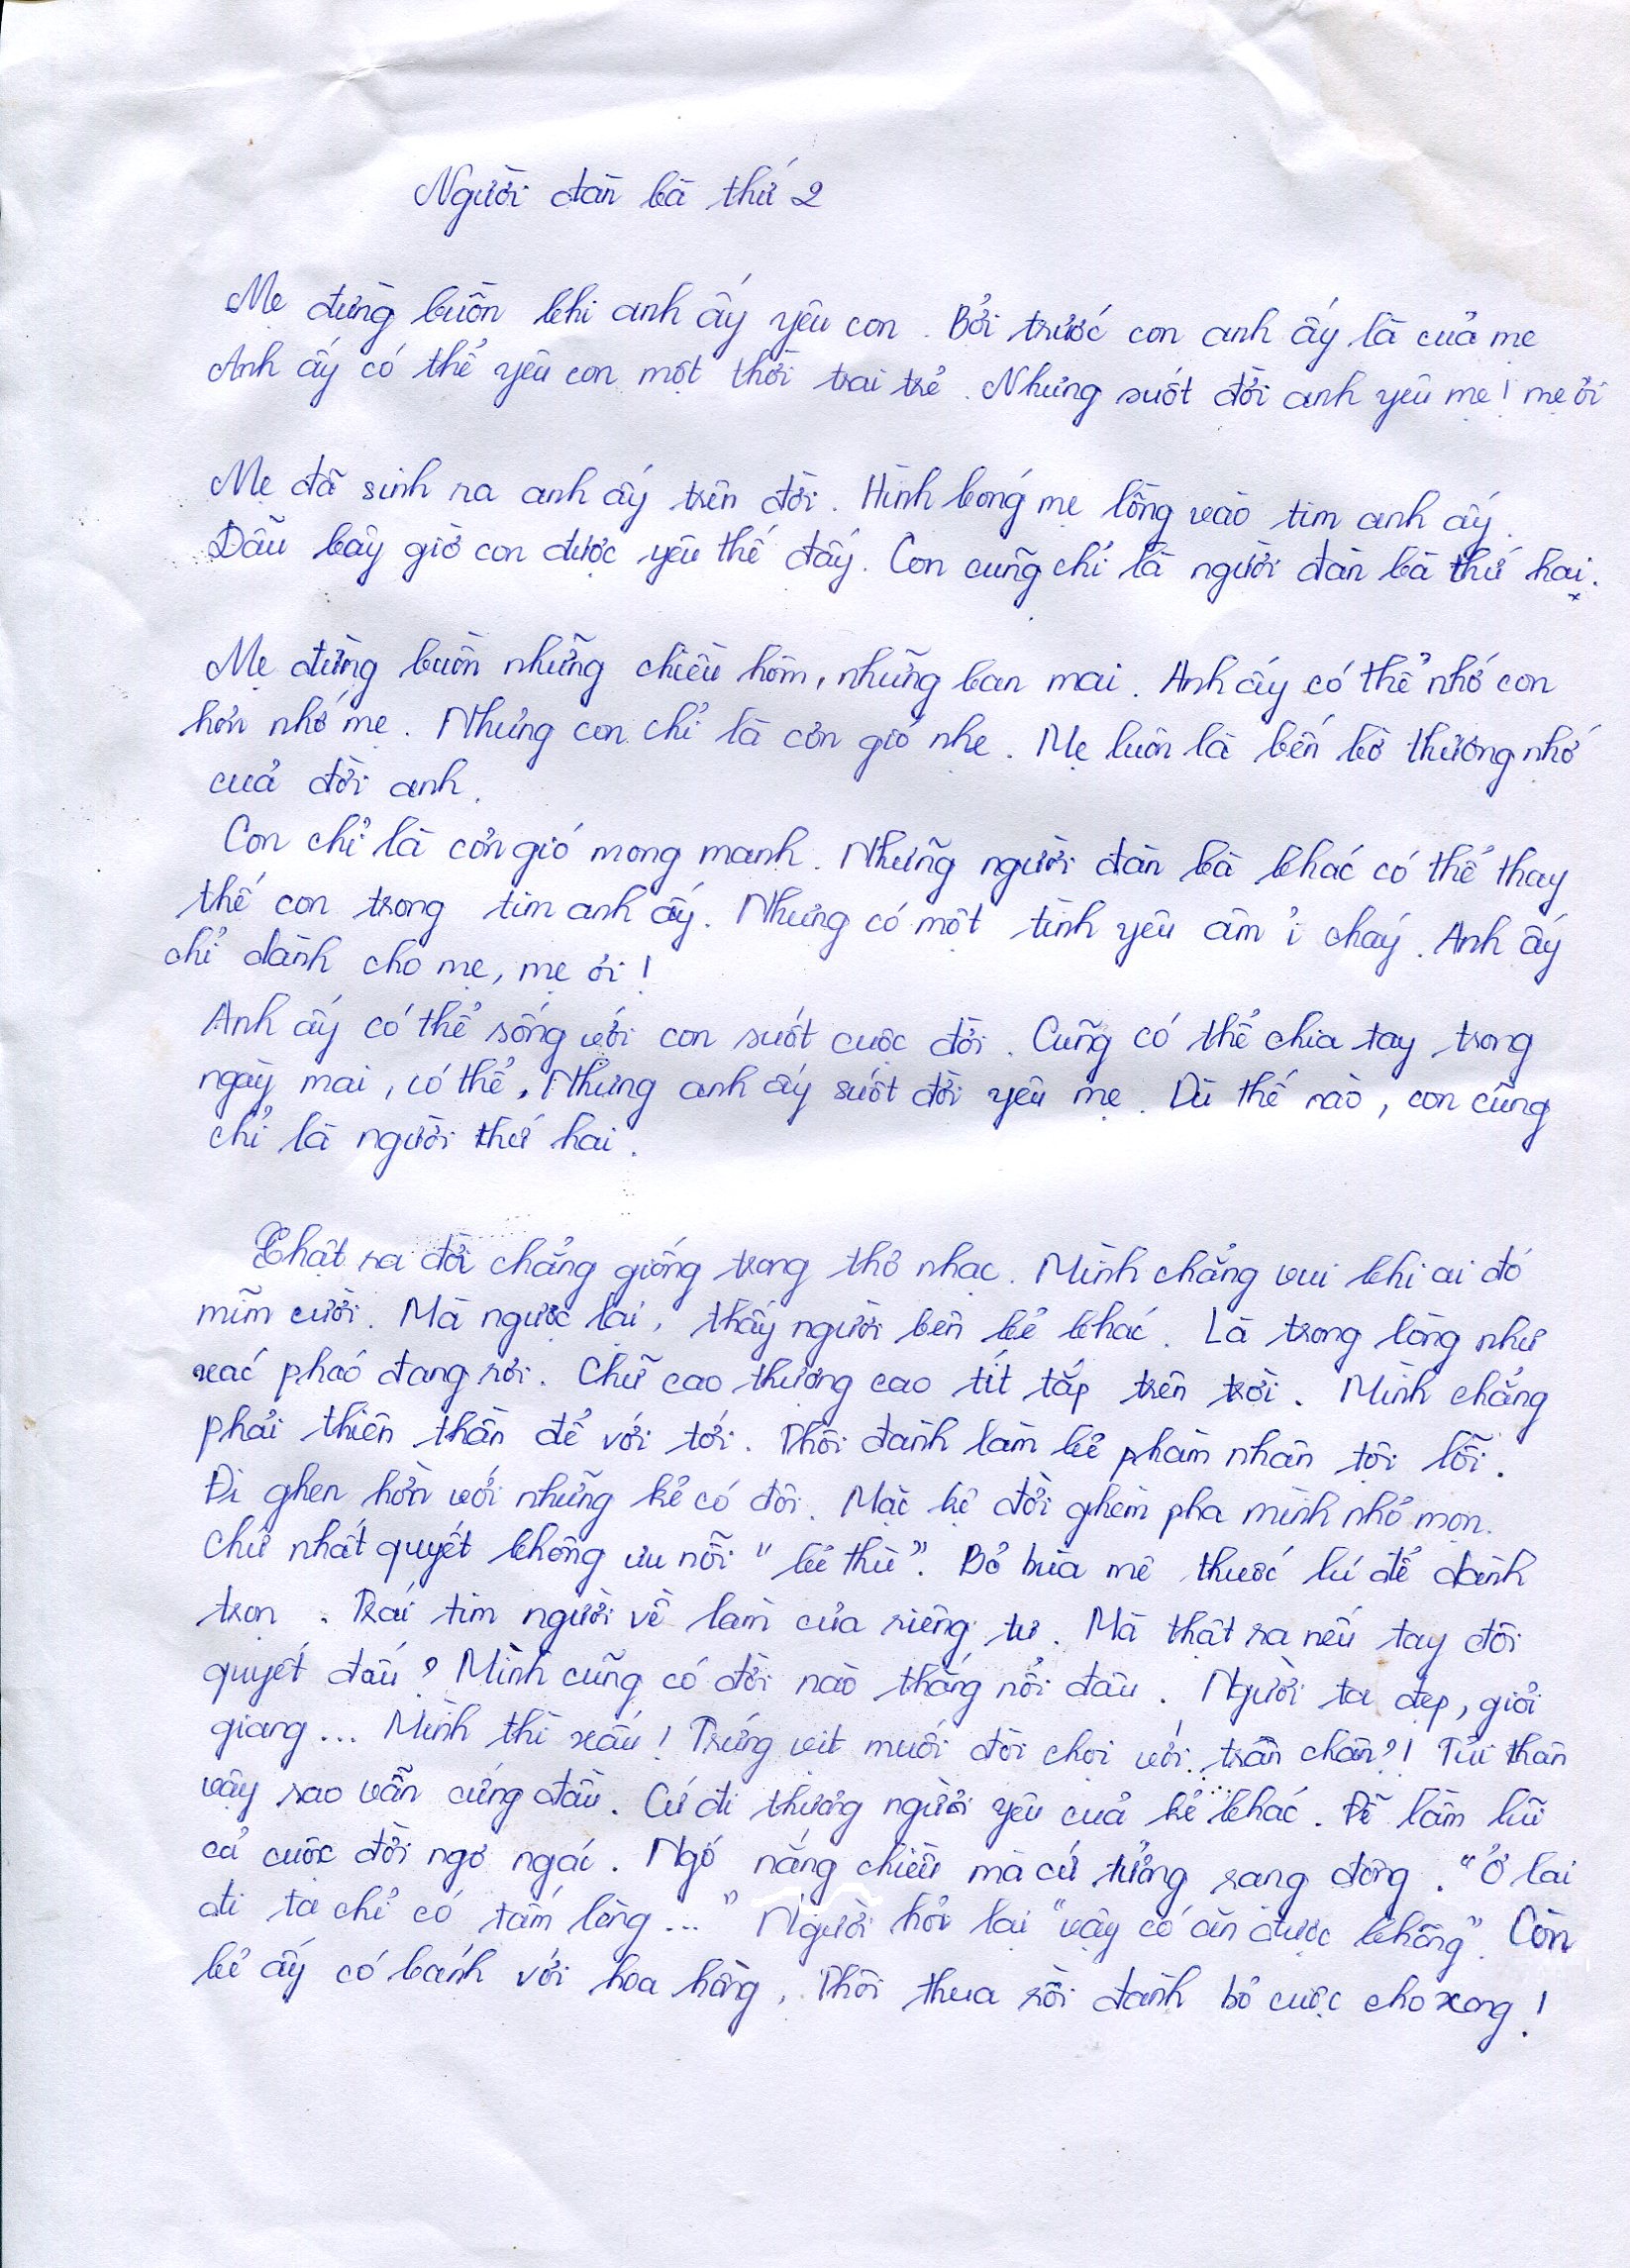 Người đàn bà thứ 2
Mẹ đừng buồn khi anh ấy yêu con. Bởi trước con anh ấy là của mẹ
Anh ấy có thể yêu con một thời trai trẻ. Nhưng suốt đời anh yêu mẹ! mẹ ơi
Mẹ đã sinh ra anh ấy trên đời. Hình bóng mẹ lồng vào tim anh ấy.
Dẫu bây giờ con được yêu thế đấy. Con cũng chỉ là người đàn bà thứ hai.
Mẹ đừng buồn những chiều hôm, những ban mai. Anh ấy có thể nhớ con
hơn nhớ mẹ. Nhưng con chỉ là cơn gió nhẹ. Mẹ luôn là bến bờ thương nhớ
của đời anh.
Con chỉ là cơn gió mong manh. Những người đàn bà khác có thể thay
thế con trong tim anh ấy. Nhưng có một tình yêu âm ỉ cháy. Anh ấy
chỉ dành cho mẹ, mẹ ơi!
Anh ấy có thể sống với con suốt cuộc đời. Cũng có thể chia tay trong
ngày mai, có thể. Nhưng anh ấy suốt đời yêu mẹ. Dù thế nào, con cũng
chỉ là người thứ hai.
Thật ra đời chẳng giống trong thơ nhạc. Mình chẳng vui khi ai đó
mĩm cười. Mà ngược lại, thấy người bên kẻ khác. Là trong lòng như
xác pháo đang rơi. Chữ cao thượng cao tít tắp trên trời. Mình chẳng
phải thiên thần để với tới. Thôi đành làm kẻ phàm nhân tội lỗi.
Đi ghen hờn với những kẻ có đôi. Mặc kệ đời ghèm pha mình nhỏ mọn.
Chứ nhất quyết không ưu nỗi "kẻ thù". Bỏ bùa mê thuốc lú để dành
trọn. Trái tim người về làm của riêng tư. Mà thật ra nếu tay đôi
quyết đấu? Mình cũng có đời nào thắng nổi đâu. Người ta đẹp, giỏi
giang... Mình thì xấu! Trứng vịt muối đòi chọi với trân châu?! Tủi thân
vậy sao vẫn cứng đầu. Cứ đi thương người yêu của kẻ khác. Để lầm lũi
cả cuộc đời ngơ ngác. Ngó nắng chiều mà cứ tưởng rạng đông. "Ở lại
đi ta chỉ có tấm lòng..." Người hỏi lại "vậy có ăn được không". Còn
kẻ ấy có bánh với hoa hồng. Thôi thua rồi đành bỏ cuộc cho xong!